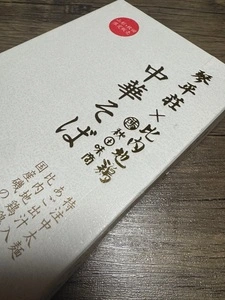 琴平荘×比内地鶏
秋田味商
中華そば
特注中太麺
比内地鶏入
あご出汁
国産磯の